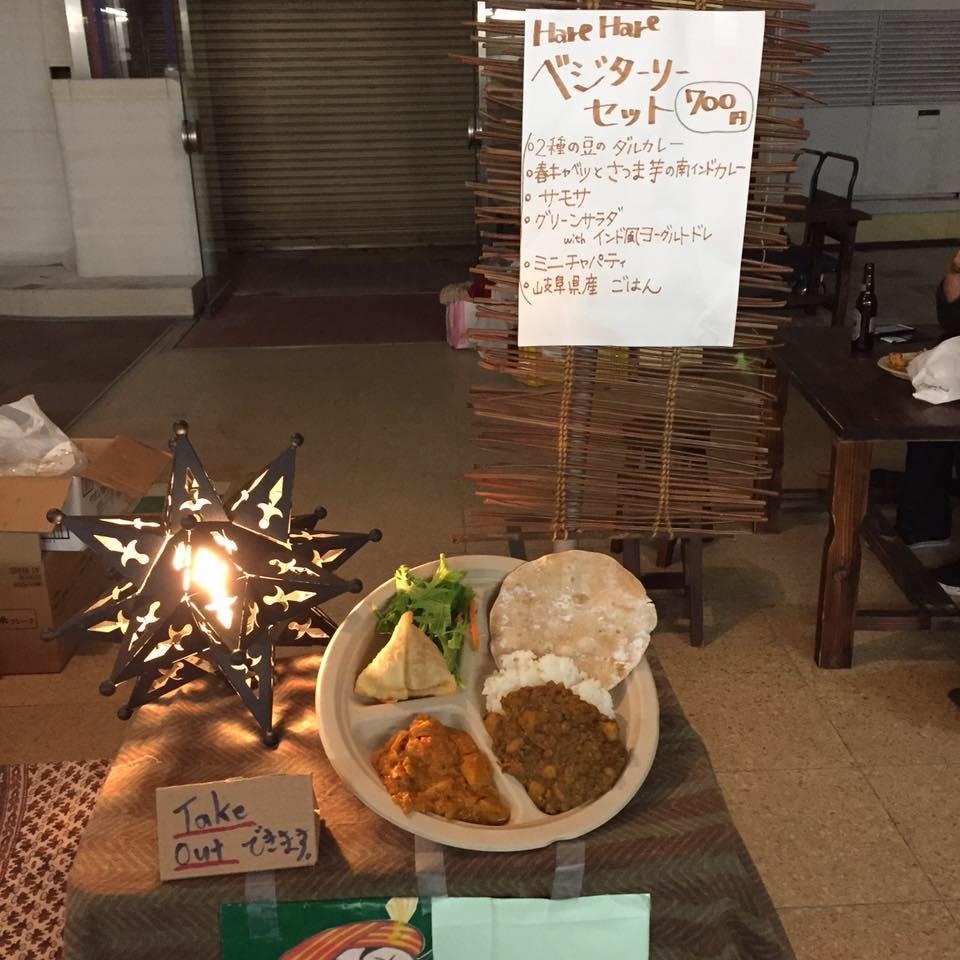 Hare Hare
ベジターリー
セット 700円
○2種の豆の ダルカレー
○春キャベツと さつま芋の南インドカレー
○ サモサ
○グリーンサラダ
with インド風ヨーグルトドレ
○ミニチャパティ
○岐阜県産 ごはん
Take
Out できます。